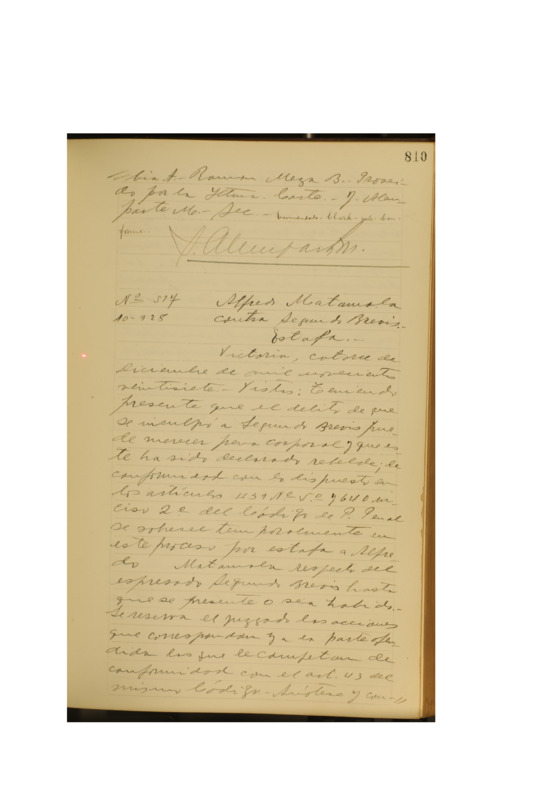 819
bia A. Ramon Meza B. Provei-
do por la Iltma. Corte - J. Alem-
parte M. - Sec -
forme.
J. Alemparte M.
Nº 514
10-928
Alfredo Matamala
contra Segundo Brevis.-
Estafa.-
Victoria, catorce de
Diciembre de mil novecientos
veintisiete - Vistos: Teniendo
presente que el delito de que
se inculpó a Segundo Brevis pue-
de merecer pena corporal y que es-
te ha sido declarado rebelde; de
conformidad con lo dispuesto en
los artículos 439 Nº 5º y 640 in-
ciso 2º del Código de P. Penal
se sobresee temporalmente en
este proceso por estafa a Alfre-
do Matamala respecto del
espresado Segundo Brevis hasta
que se presente o sea habido.-
Se reserva el juzgado las acciones
que correspondan y a la parte ofen-
dida las que le competan de
conformidad con el art. 43 del
mismo Código. Anótese y con-//